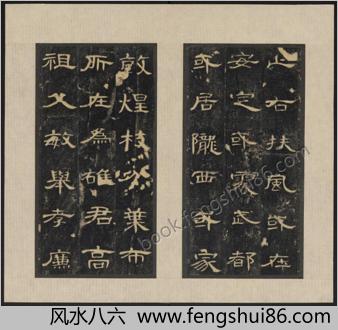 止右扶風或在
安定或處武都
或居隴西或家
敦煌枝分葉布
所在為雄君高
祖父敏舉孝廉
book.fengshui86.com
风水八六 www.fengshui86.com